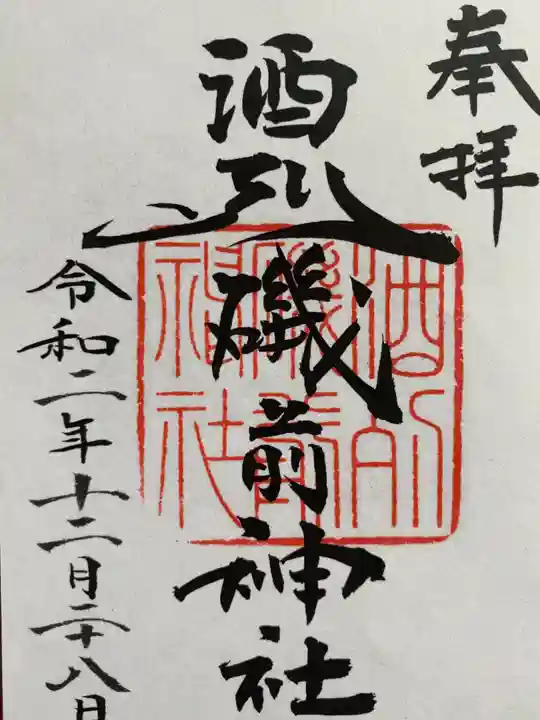 奉拝
酒列磯前神社
令和二年十二月二十八日
酒列
磯前
神社